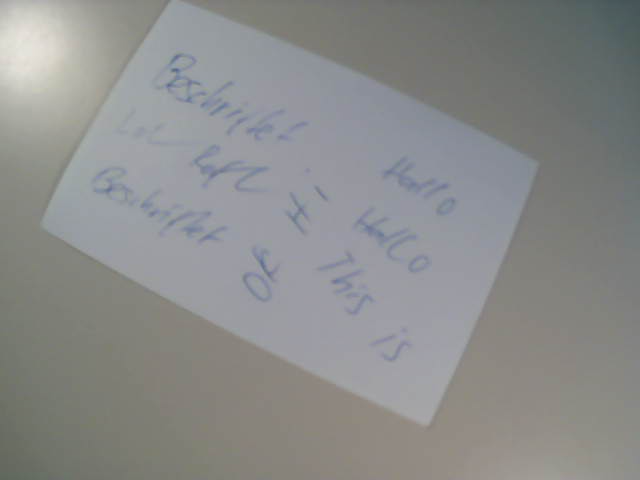 Beschriftet Hallo
LOL Rofl Hallo
Beschriftet This is